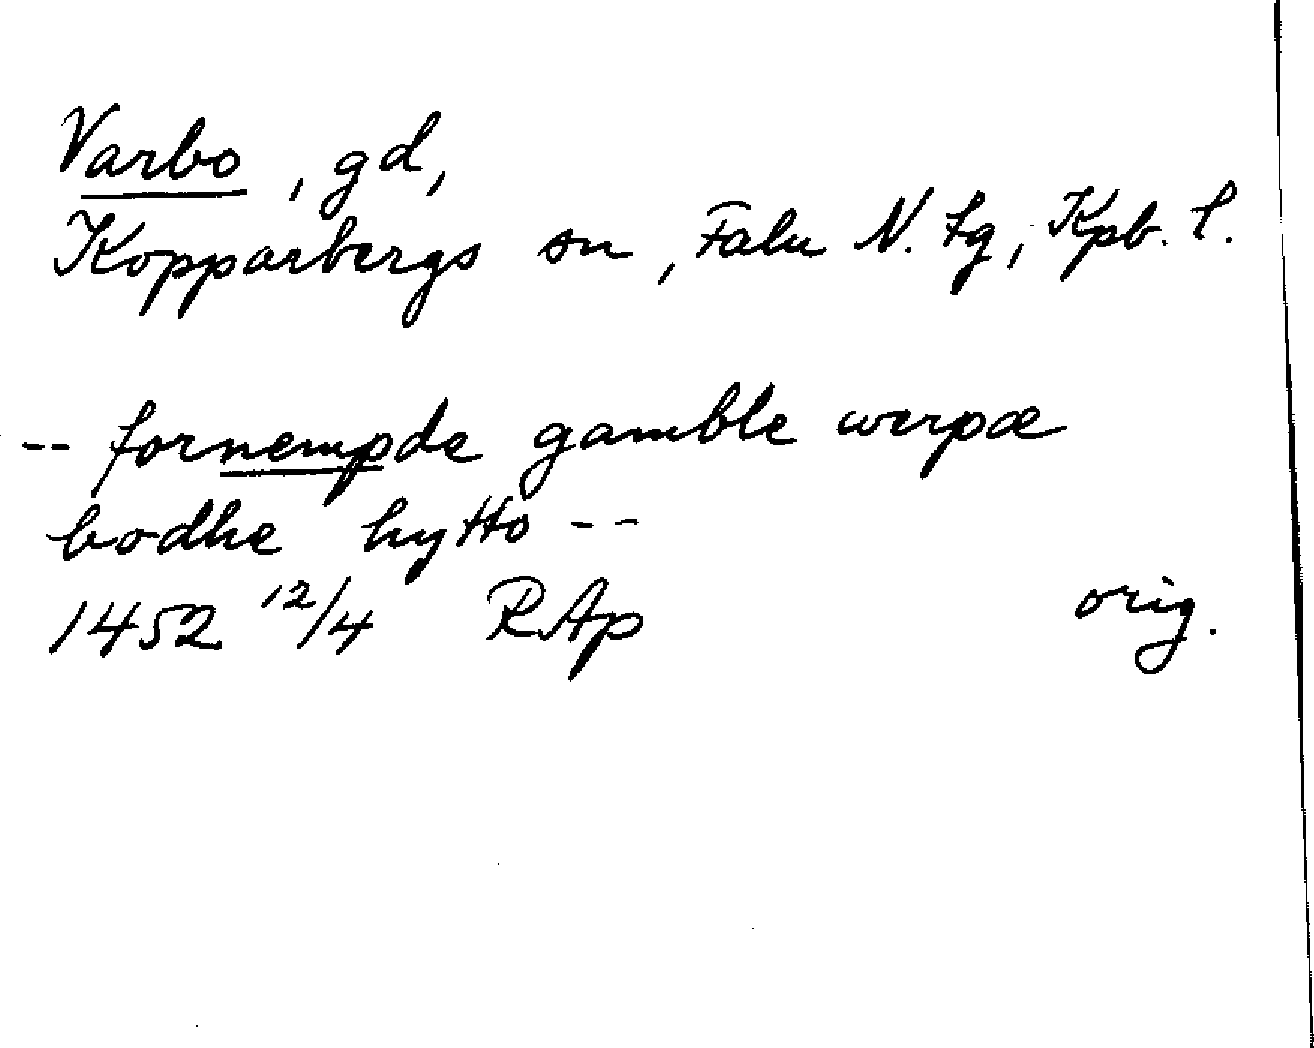 Varbo, gd,
Kopparbergs sn, Falu N. tg, Kpb. l.
-- fornempde gamble werpæ
bodhe hytto --
1452 12/4 RAp orig.